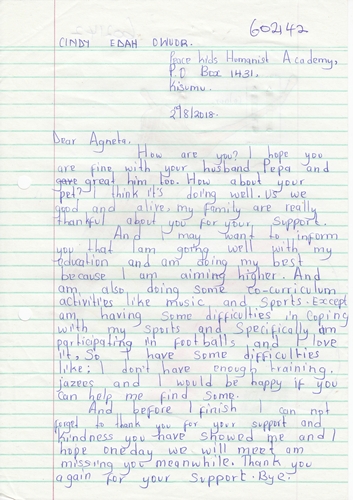 60242
CINDY EDAH OWUOR.
Peace kids Humanist Academy,
P.O Box 1431,
Kisumu.
2/8/2018.
Dear Agneta.
How are you? I hope you
are fine with your husband Pepa and
great him too. How about your
pet? I think it's doing well. Us we
good and alive, my family are really
thankful about you for your support.
And I may want to inform
you that am going well with my
education and am doing my best
because I am aiming higher. And
am also doing some co-curriculum
activities like music and Sports. Except
am having Some difficulties in Coping
with my sports and Specifically am
participating in footballs and I love
it, So I have some difficulties
like; I don't have enough training,
jazees and I would be happy if you
Can help me find Some.
And before I finish I can not
forget to thank you for your support and
Kindness you have showed me and I
hope oneday we will meet am
missing you meanwhile. Thank you
again for your Support. Bye.